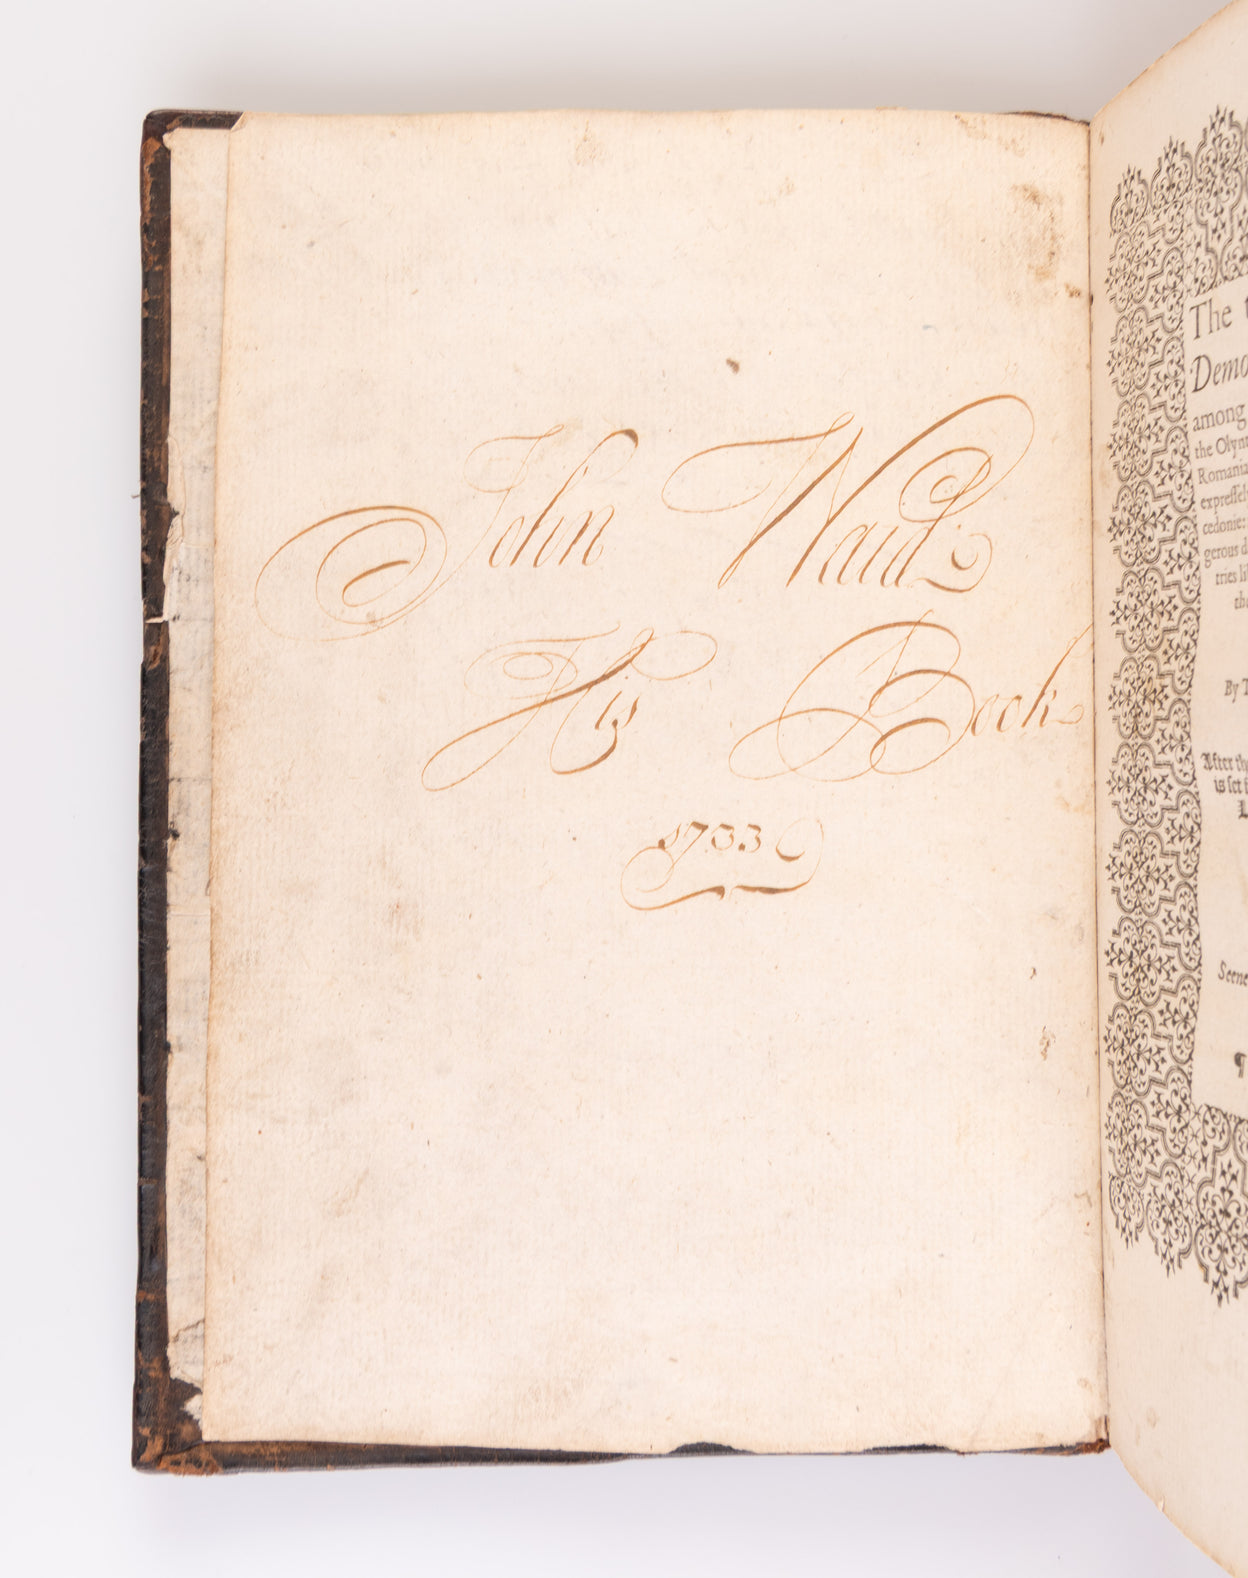 John Waid
His Book
1733
The
Demo
among
the Olyn
Romania
expressel
cedonie:
gerous d
tries li
the
By T
After the
is set f
L
Scene
¶